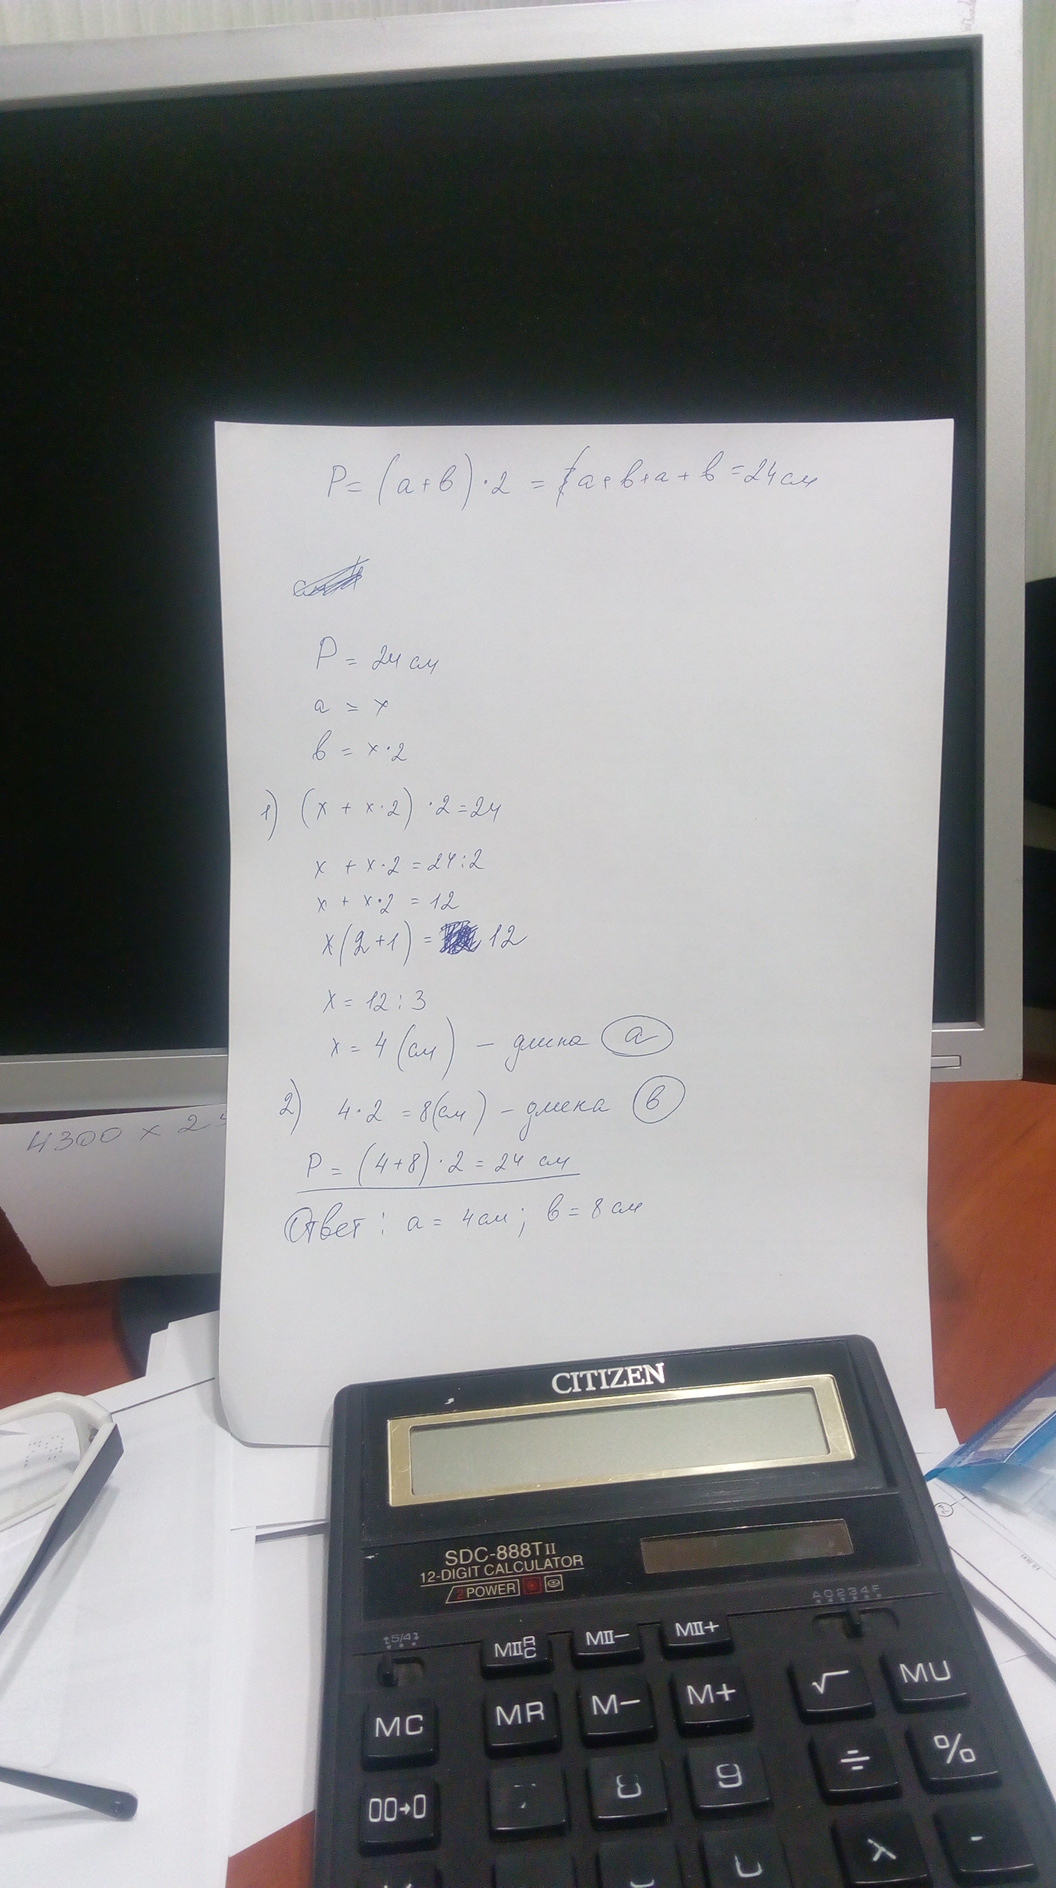 P = (a+b)·2 = a+b+a+b = 24см
P = 24 см
a = x
b = x·2
1) (x + x·2)·2=24
x + x·2 = 24:2
x + x·2 = 12
x(2+1) = 12
x = 12 : 3
x = 4 (см) – длина a
2) 4·2 = 8(см) – длина b
P = (4+8)·2 = 24 см
Ответ: a = 4см; b = 8 см
4300 x 2
CITIZEN
SDC-888TII
12-DIGIT CALCULATOR
2POWER
A0234F
5/4
MIIRC MII− MII+
MC MR M− M+ √ MU
00→0 8 9 ÷ %